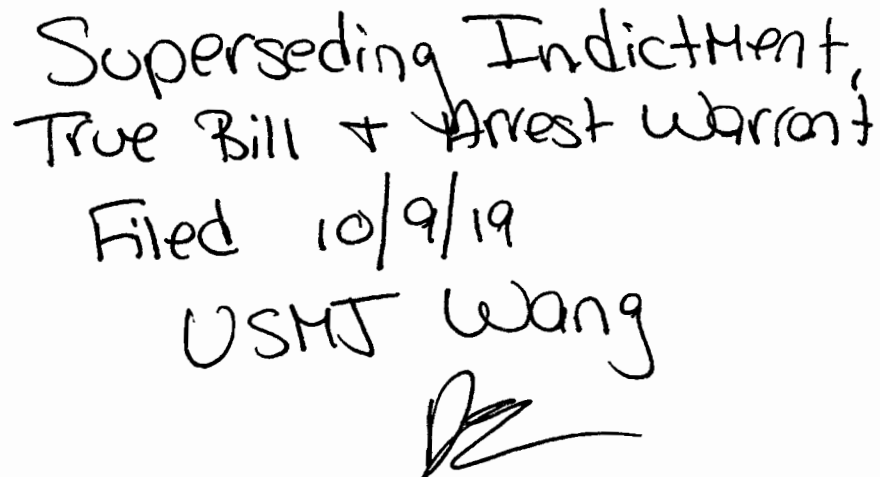 Superseding Indictment,
True Bill + Arrest Warrant
Filed 10/9/19
USMJ Wang